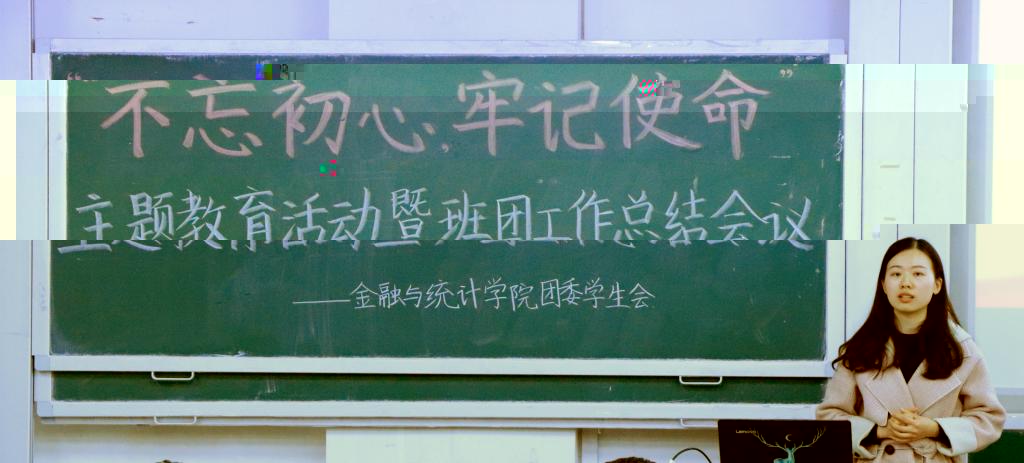 “不忘初心,牢记使命”
主题教育活动暨班团工作总结会议
——金融与统计学院团委学生会
Lenovo